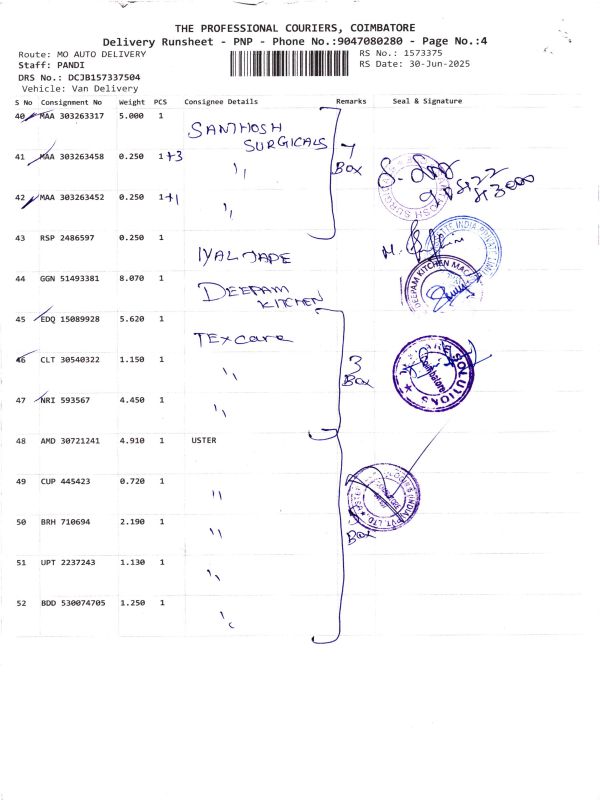 THE PROFESSIONAL COURIERS, COIMBATORE
Delivery Runsheet - PNP - Phone No.:9047080280 - Page No.:4
Route: MO AUTO DELIVERY RS No.: 1573375
Staff: PANDI RS Date: 30-Jun-2025
DRS No.: DCJB157337504
Vehicle: Van Delivery
S No Consignment No Weight PCS Consignee Details Remarks Seal & Signature
40 MAA 303263317 5.000 1 SANTHOSH SURGICALS
41 MAA 303263458 0.250 1+3 "
7 Box
42 MAA 303263452 0.250 1+1 "
43 RSP 2486597 0.250 1 IYAL JADE
44 GGN 51493381 8.070 1 DEEPAM KITCHEN
DEEPAM KITCHEN
45 EDQ 15089928 5.620 1 TEXcare
46 CLT 30540322 1.150 1 "
3 Box
SOLUTIONS
Coimbatore
47 NRI 593567 4.450 1 "
48 AMD 30721241 4.910 1 USTER
49 CUP 445423 0.720 1 "
INDIA PVT. LTD.
50 BRH 710694 2.190 1 "
5 Box
51 UPT 2237243 1.130 1 "
52 BDD 530074705 1.250 1 "